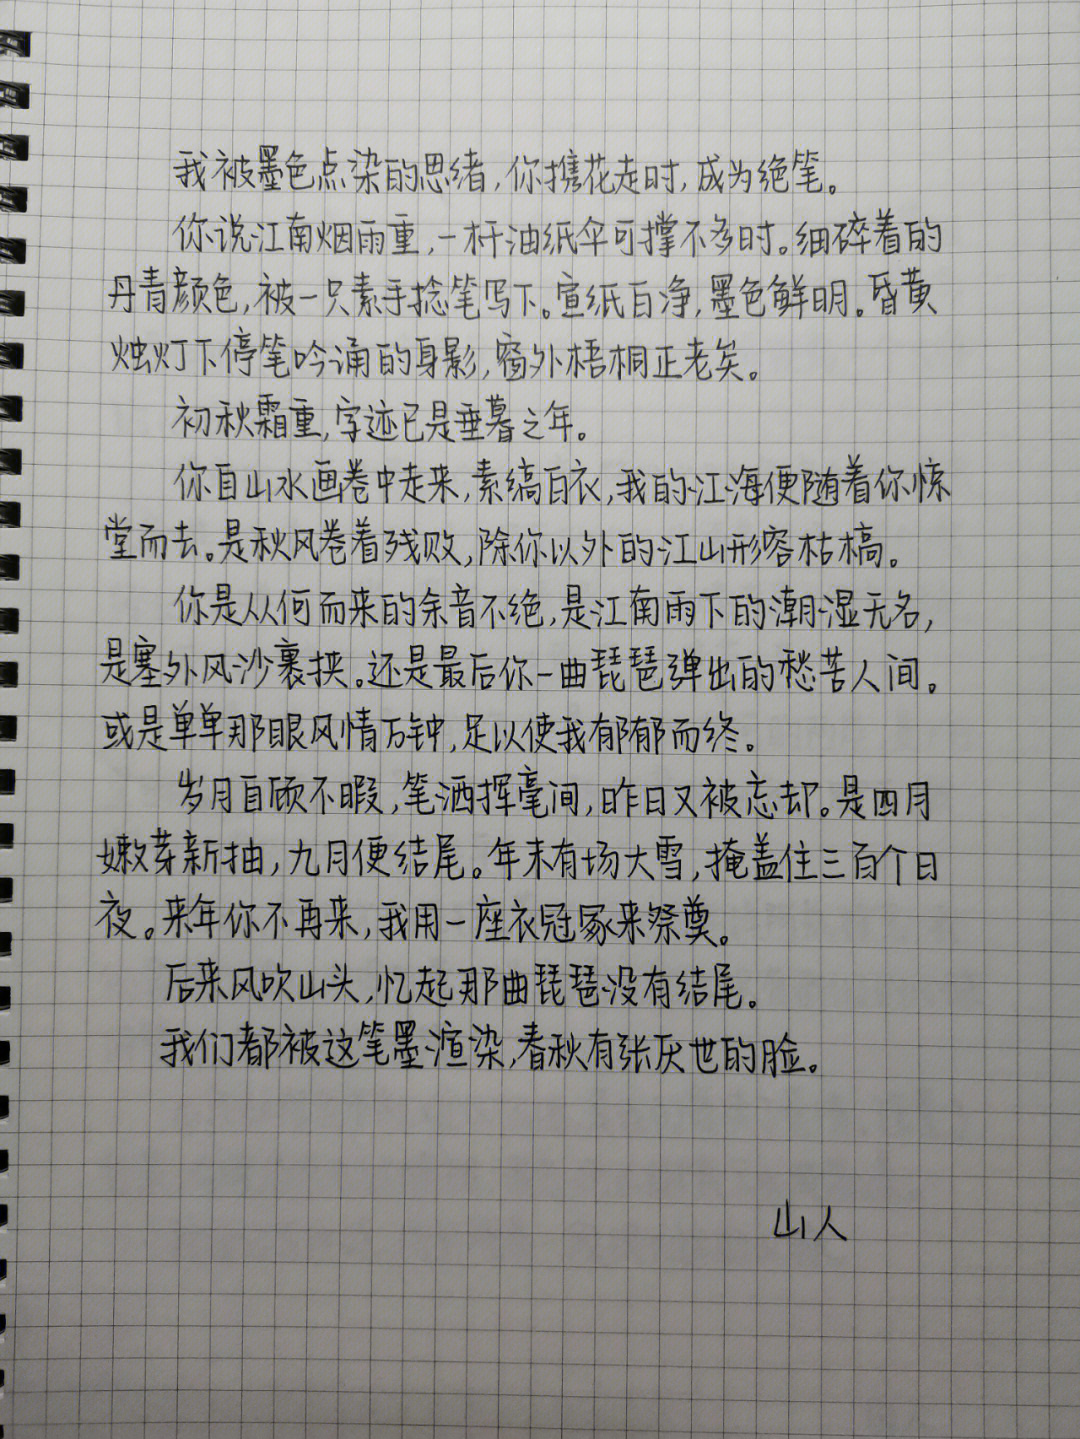 我被墨色点染的思绪,你携花走时,成为绝笔。
你说江南烟雨重,一杆油纸伞可撑不多时。细碎着的
丹青颜色,被一只素手捻笔写下。宣纸白净,墨色鲜明。昏黄
烛灯下停笔吟诵的身影,窗外梧桐正老矣。
初秋霜重,字迹已是垂暮之年。
你自山水画卷中走来,素缟白衣,我的江海便随着你惊
堂而去。是秋风卷着残败,除你以外的江山形容枯槁。
你是从何而来的余音不绝,是江南雨下的潮湿无名,
是塞外风沙裹挟。还是最后你一曲琵琶弹出的愁苦人间。
或是单单那眼风情万钟,足以使我郁郁而终。
岁月自顾不暇,笔洒挥毫间,昨日又被忘却。是四月
嫩芽新抽,九月便结尾。年末有场大雪,掩盖住三百个日
夜。来年你不再来,我用一座衣冠冢来祭奠。
后来风吹山头,忆起那曲琵琶没有结尾。
我们都被这笔墨渲染,春秋有张厌世的脸。
山人